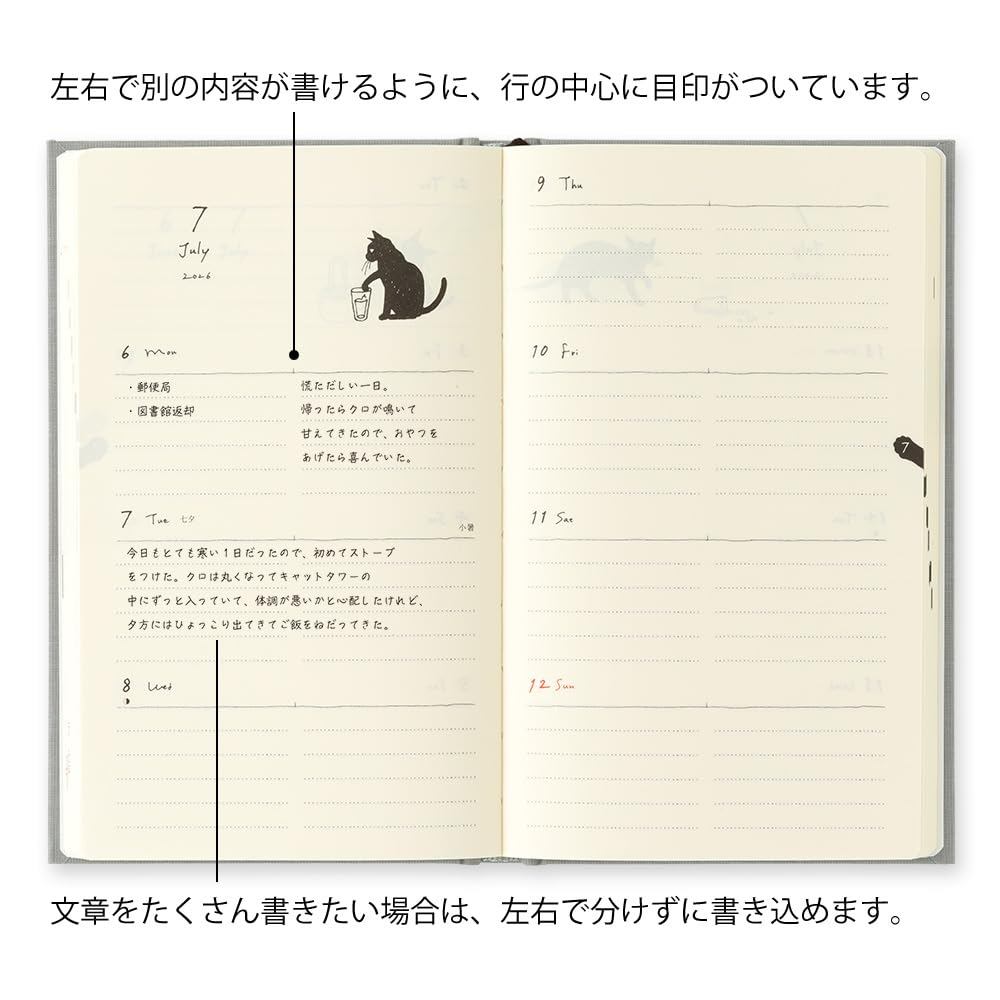 左右で別の内容が書けるように、行の中心に目印がついています。
7
July
2026
6 Mon
・郵便局
・図書館返却
慌ただしい一日。
帰ったらクロが鳴いて
甘えてきたので、おやつを
あげたら喜んでいた。
7 Tue 七夕
小暑
今日もとても寒い1日だったので、初めてストーブ
をつけた。クロは丸くなってキャットタワーの
中にずっと入っていて、体調が悪いかと心配したけれど、
夕方にはひょっこり出てきてご飯をねだってきた。
8 Wed
9 Thu
10 Fri
7
11 Sat
12 Sun
文章をたくさん書きたい場合は、左右で分けずに書き込めます。